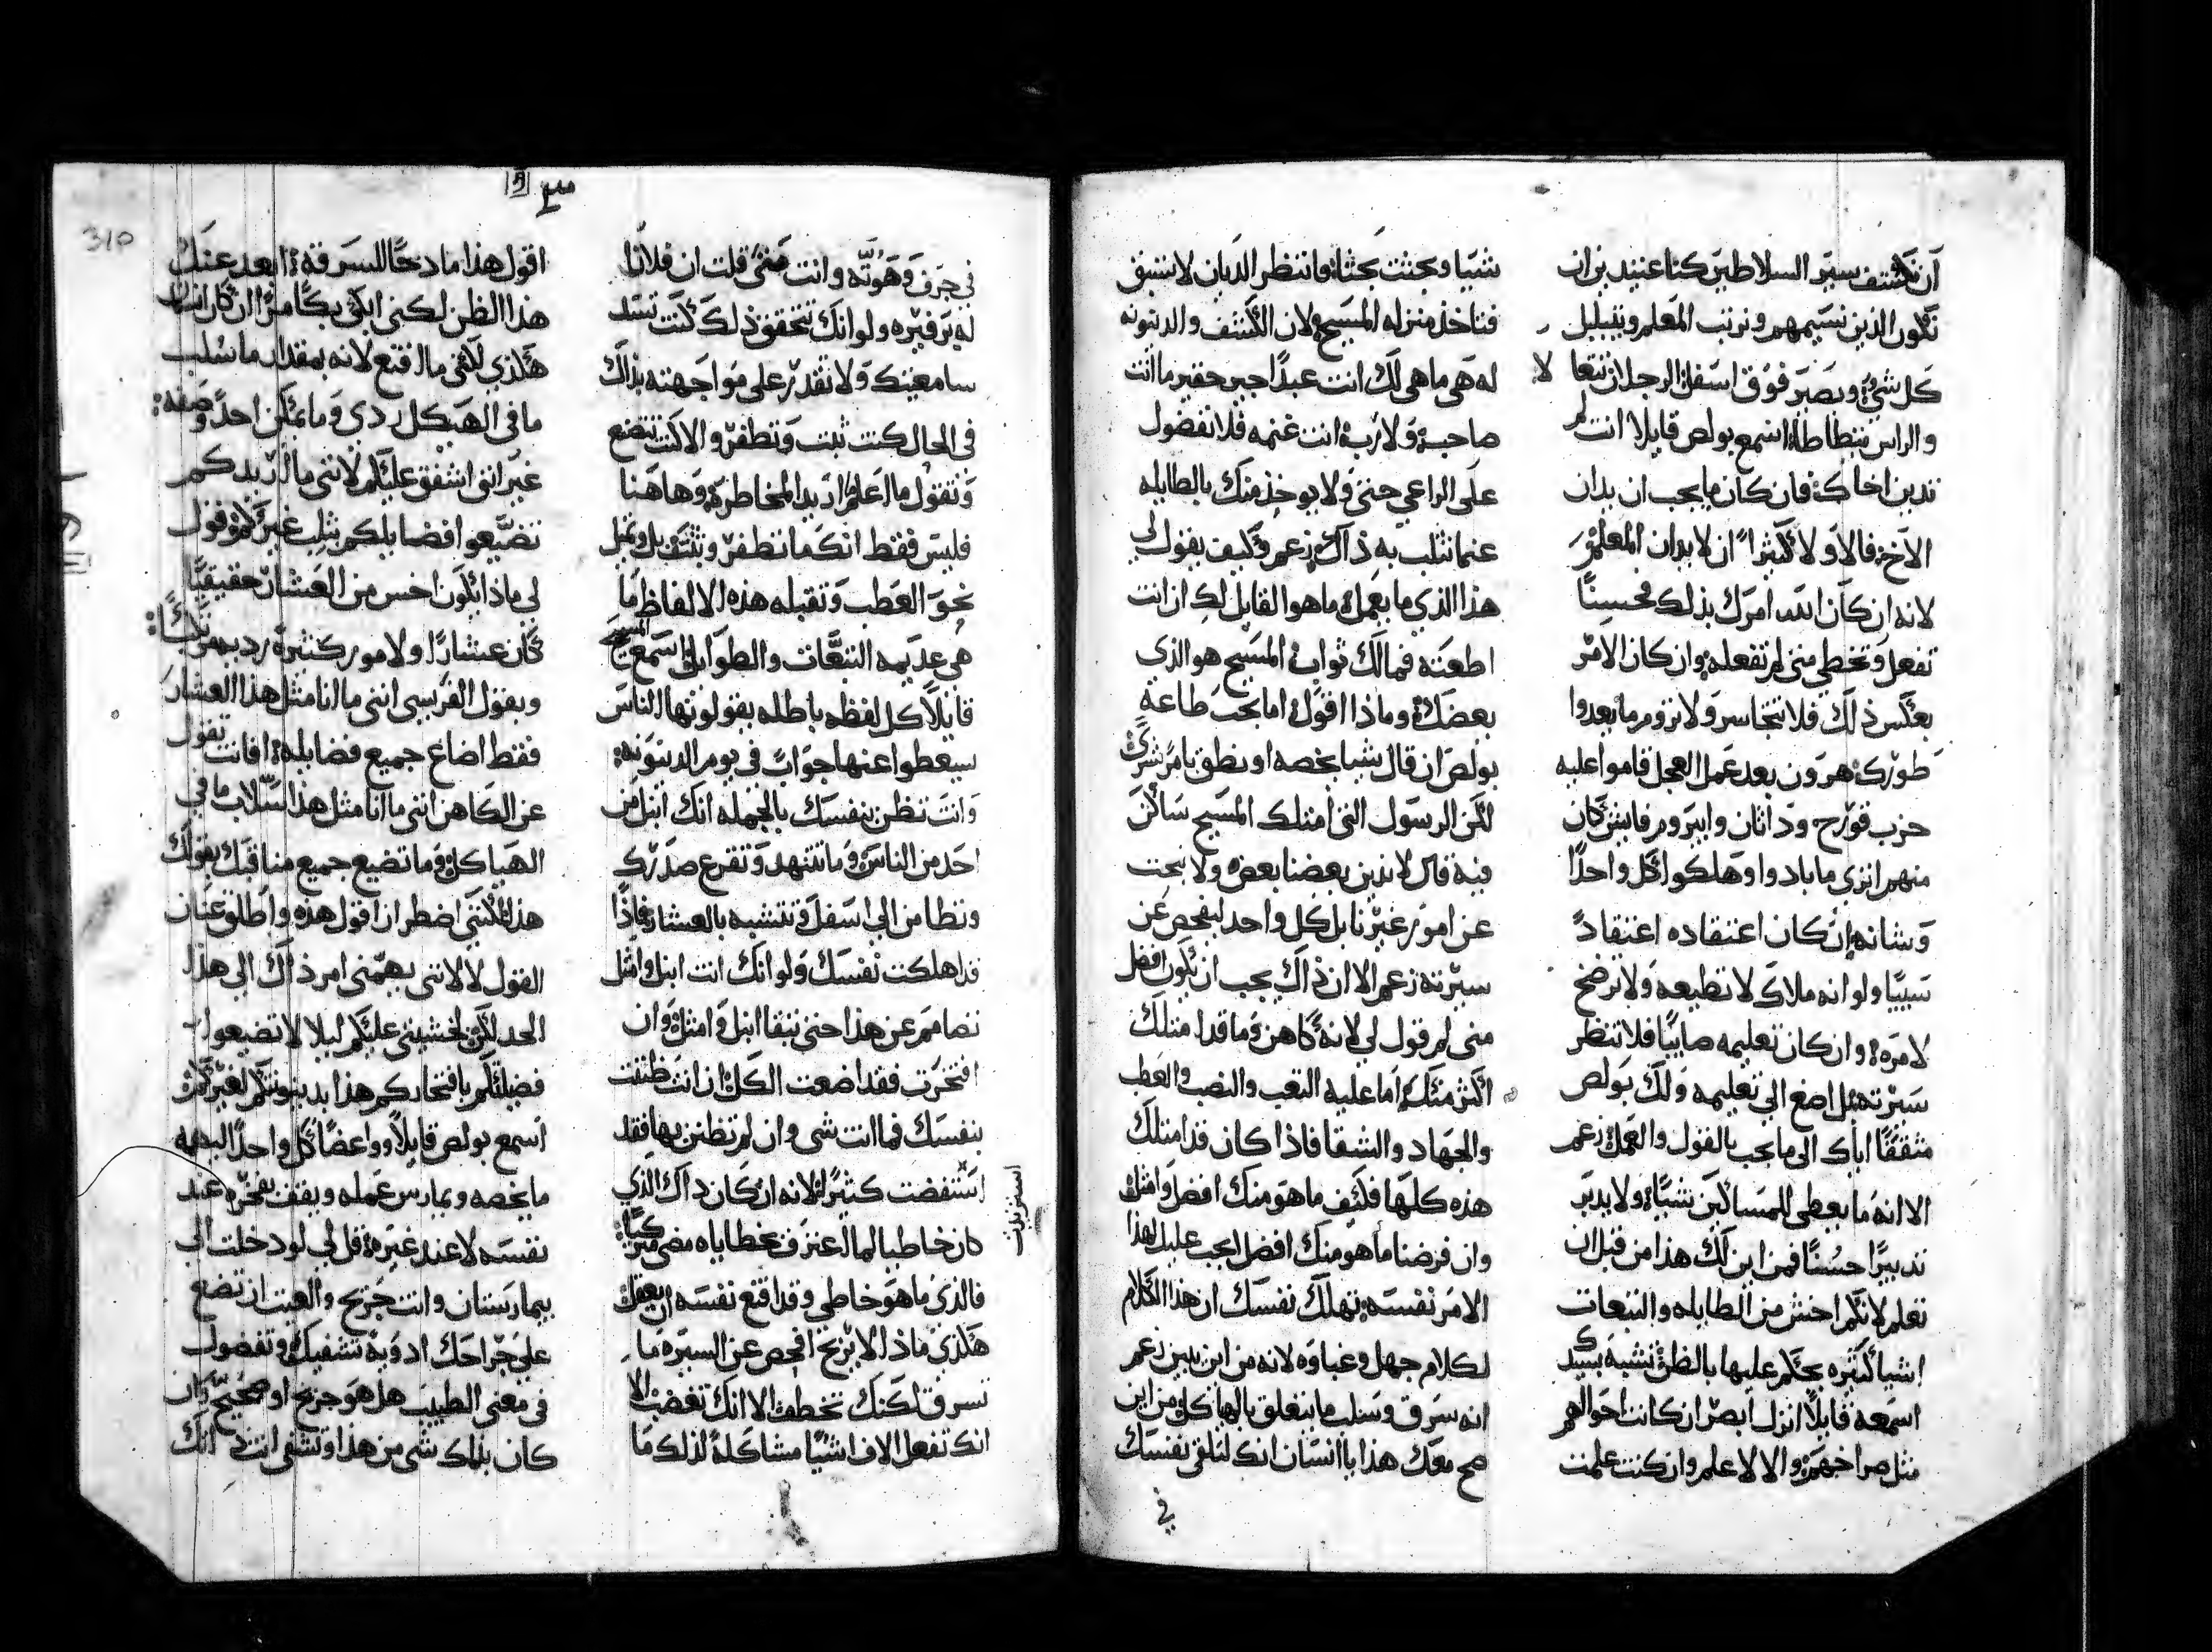 ان نكشف سير السلاطين كنا عنيدين ان
نكون الذين نسيمهم ونرتب المعلم ويتبلبل
كل شيء ويصير فوق اسفل الرجلان تتعالا
والراس تتطاطا اسمع بولص قايلا انت لم
تدين اخاك فان كان ما يجب ان يدان
الاخ فالاولا كثيرا ان لا يدان المعلم
لانه ان كان الله امرك بذلك فحسنا
تفعل وتخطي متى لم تفعله وان كان الامر
بعكس ذلك فلا تتجاسر ولا تروم ما بعدوا
طورك هرون بعد عمل العجل قاموا عليه
حزب قورح وداثان وابيروم فايش كان
منهم اتري ما بادوا وهلكوا كل واحدا
وشانه ان كان اعتقاده اعتقادا
سيبيا ولو انه ملاك لا تطيعه ولا ترضخ
لامره وان كان تعليمه صايبا فلا تنظر
سيرته بل اصغ الي تعليمه ولك بولص
مثقفا اياك الى ما يجب بالقول والعمل زعم
الا انه ما يعطي للمساكين شيا ولا يدبر
تدبيرا حسنا فمن اين لك هذا من قبل ان
تعلم لا تلم اخش من الطايله والتبعات
اشيا كثيره يحكم عليها بالظن تشبه بسيدك
اسمعه قايلا انزل ابصر ان كانت احوالهم
مثل صراخهم والا لا علم وان كنت علمت
شيا وبحثت بحثا وانتظر الديان لا تسبق
فتاخذ منزله المسيح لان الكشف والدينونه
له هي ما هي لك انت عبدا جير حقير ما انت
صاحب ولا رب انت غنمه فلا تفضول
على الراعي حتى ولا يوخذ منك بالطايله
عنما تثلب به ذاك زعم وكيف يقول لي
هذا الذي ما يعمل ما هو القايل لك ان انت
اطعته فما لك ثواب المسيح هو الذي
بعضك وماذا اقول اما يجب طاعة
بولص ان قال شيا يخصه او نطق بامر شري
لكن الرسول التي امتلك المسيح ساكن
فيه قال لا ندين بعضنا بعض ولا نبحث
عن امور غيرنا بل كل واحد ليفحص عن
سيرته زعم الا ان ذاك يجب ان يكون افضل
مني لم قول لي لانه كاهن وما قد امتلك
اكثر منك اما عليه التعب والنصب والعطب
والجهاد والشقا فاذا كان قد امتلك
هذه كلها فكيف ما هو منك افضل وامثل
وان فرضنا ما هو منك افضل ايجب عليك لهذا
الامر نفسه تهلك نفسك ان هذا الكلام
لكلام جهل وغباوه لانه من اين يبين زعم
انه سرق وسلب ما يتعلق بالهاكل ومن اين
صح معك هذا يا انسان انك لتلقي نفسك
في
في جرف وهوته وانت متى قلت ان فلانا
له ترفيره ولو انك تتحقق ذلك كنت تسد
سامعيتك ولا تقدر على مواجهته بذلك
في الحال كنت ثبت وتطفر والا كنت تتضع
وتقول ما اعلم اريد المخاطره وهاهنا
فليس فقط انك ما تطفر وتثقف بل وتميل
نحو العطب وتقبله هذه الالفاظ ما
هي عديمه التبعات والطوايل اسمع المسيح
قايلا كل لفظه باطله يقولونها الناس
سيعطوا عنها جواب في يوم الدينونه
وانت تظن بنفسك بالجمله انك انبل من
احد من الناس وما تتنهد وتقرع صدرك
وتطامن الي اسفل وتتشبه بالعشار فاذا
قد اهلكت نفسك ولو انك انت انبل وامثل
تصامم عن هذا حتى تبقا انبل وامثل وان
افتخرت فقد اضعت الكل ان انت ظننت
بنفسك فما انت شي وان لم تظنن بها فقد
استنفضت كثيرا لانه ان كان ذاك الذي
كان خاطيا لما اعترف بخطاياه مضى متزكيا
فالذي ما هو خاطي وقد اقنع نفسه ان بعقل
هكذي ماذا لا يرتح افحص عن السيره ما
تسرق لكنك تخطف الا انك تغضب الا
انك تفعل الاف اشيا مشاكلة لذلك ما
استزيدت
310
اقول هذا مادحا للسرقه ابعد عنك
هذا الظن لكنى ابكي بكا مرا ان كان انسان
هكذي لكني ما اقنع لانه بمقدار ما سلب
ما في الهيكل ردي وما يمكن احدا وصفه
غير انني اشفق عليكم لانني ما اريدكم
تضيعوا فضايلكم بثلب غيركم وقول
لي ماذا يكون اخس من العشار حقيقيا
كان عشارا ولامور كثيرة رديه مرتكبا
ويقول الفريسي انني ما انا مثل هذا العشار
فقط اضاع جميع فضايله افانت تقول
عن الكاهن انني ما انا مثل هذا السلاب ما في
الهياكل وما تضيع جميع مناقبك بقولك
هذا لكنني اضطر ان اقول هذه واطلق عنان
القول لا لانني يهمني امر ذاك الي هذا
الحد لكن لخشيتي عليكم ليلا لا تضيعوا
فضيلتكم بافتخاركم هذا بدينونتكم لغيركم
اسمع بولص قايلا وواعضا كل واحدا
ما يخصه ويمارس عمله ويقف بفخره عند
نفسه لا عند غيره قل لي لو دخلت الي
بيمارستان وانت جريح والعبت ان تضع
علي جراحك ادويه تشفيك وتفضول
في معني الطبيب هل هو جريح او صحيح وان
كان بذلك شي من هذا وتشفى انت انك